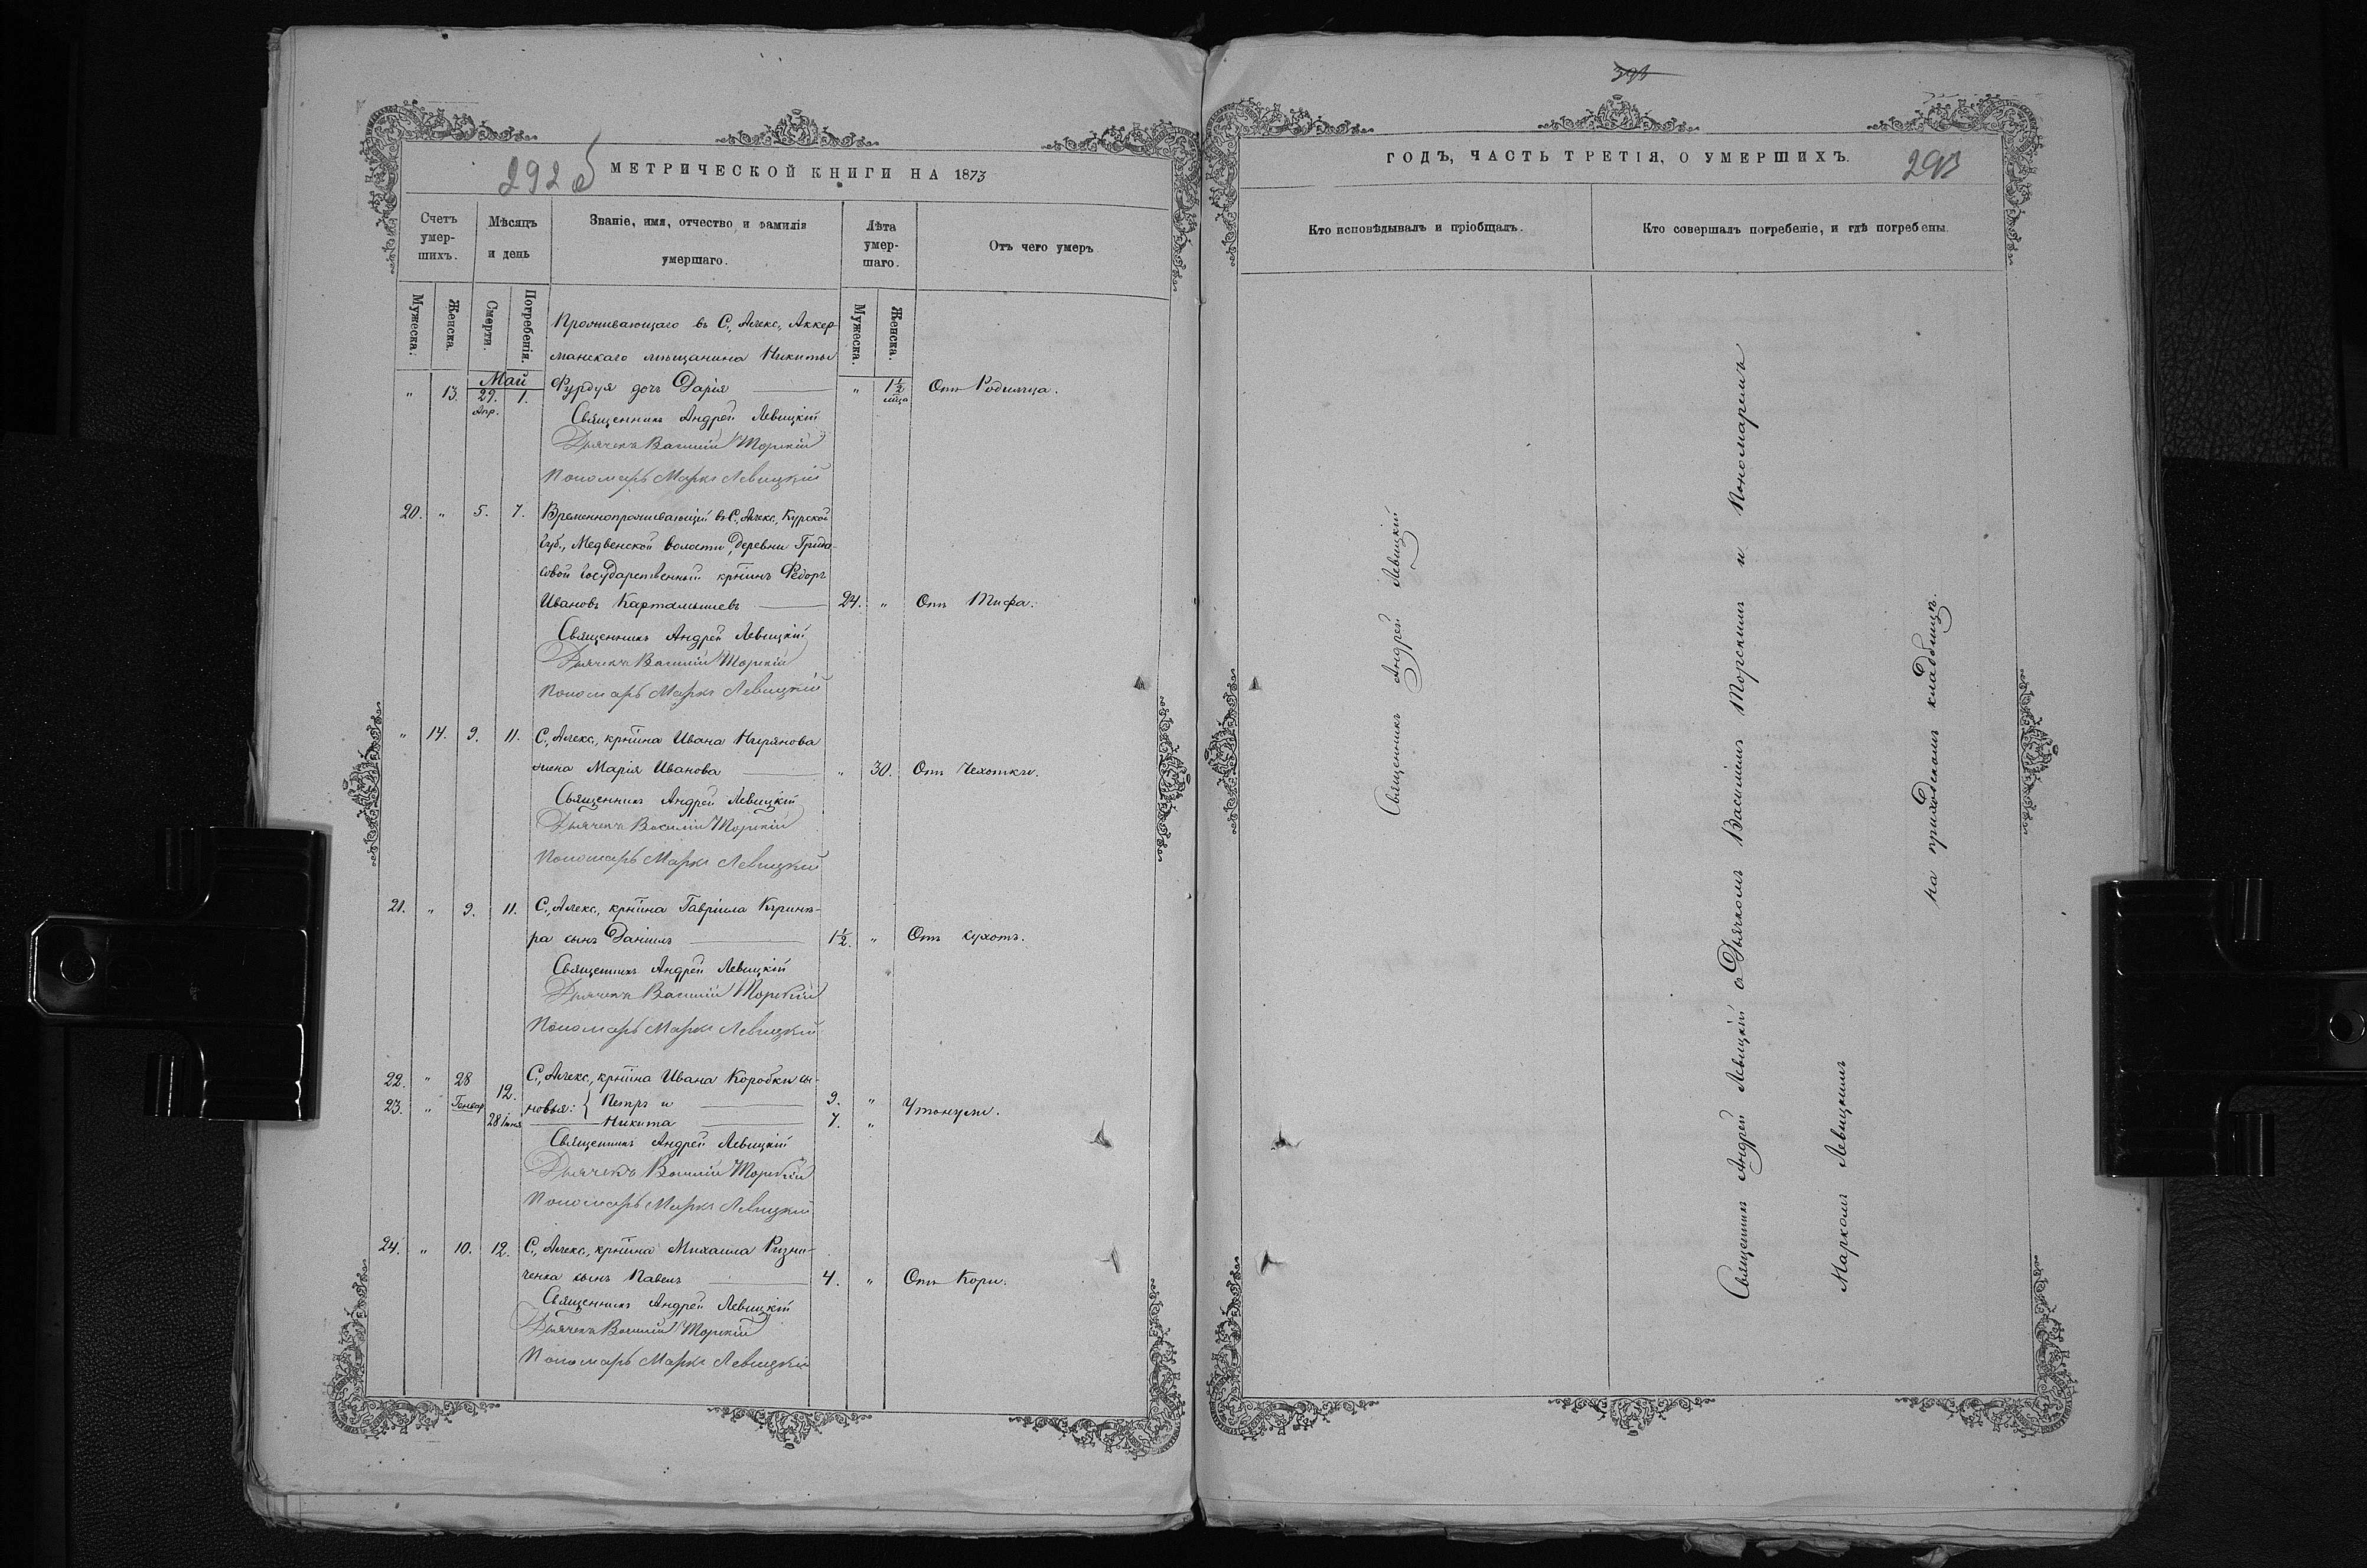 292 б
МЕТРИЧЕСКОЙ КНИГИ НА 1873
Счетъ умер-шихъ.
Мѣсяцъ и день
Званіе, имя, отчество и фамилія умершаго.
Лѣта умер-шаго.
Отъ чего умеръ
Мужеска.
Женска.
Смерти.
Погребенія.
Мужеска.
Женска.
Проживающаго въ С., Алекс., Аккер-
манскаго мѣщанина Никиты
Май
" 13. 29. 1. Фурдуя дочь Дарія " 1½ Отъ Родимца.
Апр. мца
Священникъ Андрей Левицкій
Дьячекъ Василій Торскій
Пономарь Маркъ Левицкій
20. " 5. 7. Временнопроживающій въ С., Алекс., Курской
Губ., Медвенской волости, деревни Грида-
совой государственный крт̃инъ Ѳедоръ
Ивановъ Картамышевъ 24. " Отъ Тифа.
Священникъ Андрей Левицкій
Дьячекъ Василій Торскій
Пономарь Маркъ Левицкій
" 14. 9. 11. С., Алекс., крт̃ина Ивана
жена Марія Иванова " 30. Отъ Чехотки.
Священникъ Андрей Левицкій
Дьячекъ Василій Торскій
Пономарь Маркъ Левицкій
21. " 9. 11. С., Алекс., крт̃ина Гавріила
ра сынъ Даніилъ 1½. " Отъ сухотъ.
Священникъ Андрей Левицкій
Дьячекъ Василій Торскій
Пономарь Маркъ Левицкій
22. " 28 С., Алекс., крт̃ина Ивана Коробки сы-
23. " Генвар 12. новья: { Петръ и 9. " Утонули.
28 Никита 7. "
Священникъ Андрей Левицкій
Дьячекъ Василій Торскій
Пономарь Маркъ Левицкій
24. " 10. 12. С., Алекс., крт̃ина Михаила Ризни-
ченка сынъ Павелъ 4. " Отъ Кори.
Священникъ Андрей Левицкій
Дьячекъ Василій Торскій
Пономарь Маркъ Левицкій
ГОДЪ, ЧАСТЬ ТРЕТІЯ, О УМЕРШИХЪ.
293
Кто исповѣдывалъ и пріобщалъ.
Кто совершалъ погребеніе, и гдѣ погребены.
Священникъ Андрей Левицкій
Священникъ Андрей Левицкій съ Дьячкомъ Василіемъ Торскимъ и Пономаремъ
Маркомъ Левицкимъ
на приходскомъ кладбищѣ.